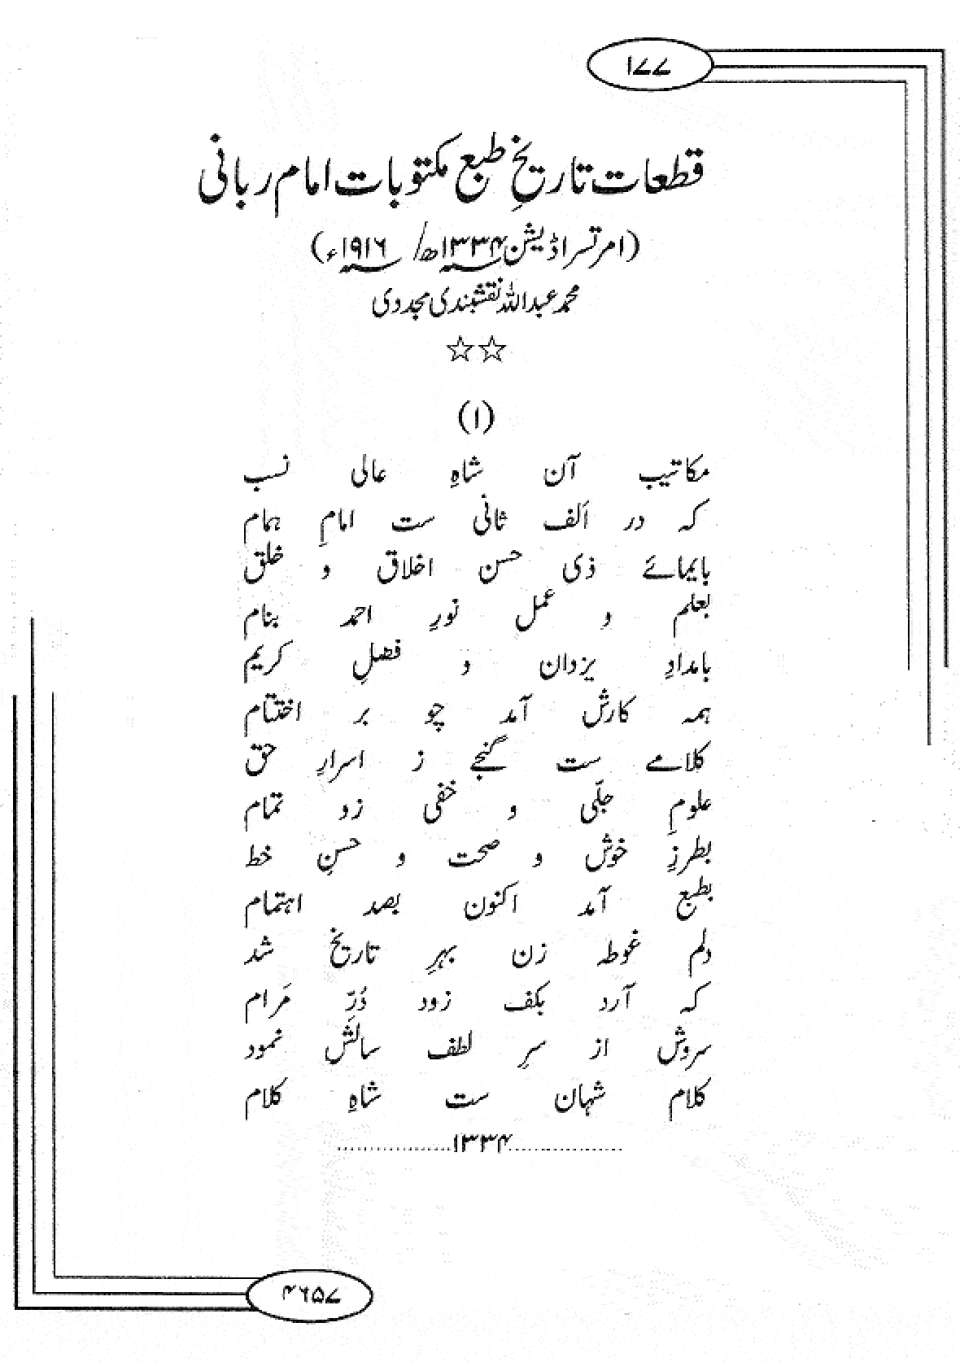 ۱۷۷
قطعات تاریخِ طبع مکتوبات امام ربانی
(امرتسر اڈیشن ۱۳۳۴ھ/ ۱۹۱۶ء)
محمد عبداللہ نقشبندی مجددی
☆☆
(۱)
مکاتیب آن شاہِ عالی نسب
کہ در اَلف ثانی ست امامِ ہمام
بایمائے ذی حسن اخلاق و خلق
بعلم و عمل نورِ احمد بنام
بامدادِ یزدان و فضلِ کریم
ہمہ کارش آمد چو بر اختتام
کلامے ست گنجے ز اسرارِ حق
علومِ جلّی و خفی زو تمام
بطرزِ خوش و صحت و حسنِ خط
بطبع آمد اکنون بصد اہتمام
دلم غوطہ زن بہرِ تاریخ شد
کہ آرد بکف زود دُرِّ مَرام
سروش از سرِ لطف سالش نمود
کلام شہان ست شاہِ کلام
..................۱۳۳۴..................
۴۶۵۷